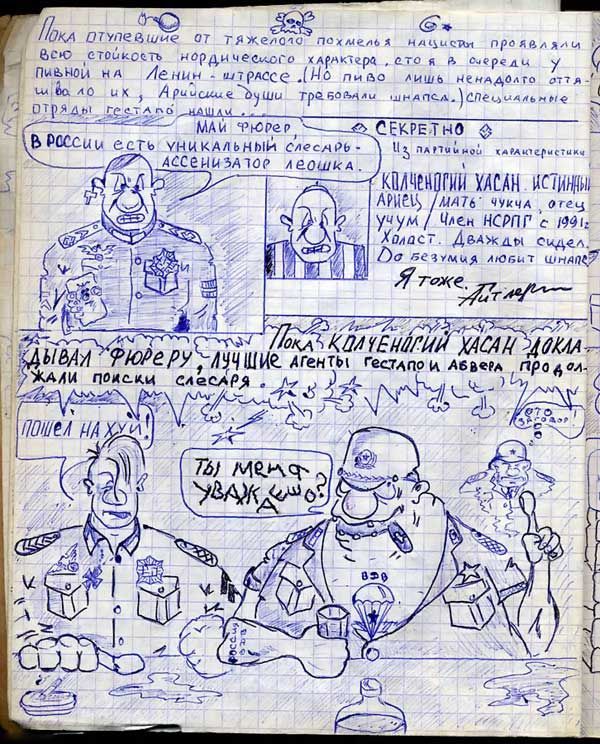 6
Пока отупевшие от тяжелого похмелья нацисты проявляли
всю стойкость нордического характера, стоя в очереди у
пивной на Ленин-штрассе. (Но пиво лишь ненадолго оття-
гивало их, Арийские души требовали шнапса.) специальные
отряды гестапо нашли...
Май фюрер,
в России есть уникальный слесарь-
ассенизатор Леошка.
Секретно
Из партийной характеристики
Колченогий Хасан. Истинный
ариец /мать чукча, отец
учум/ Член НСРПГ с 1991г
Холост. Дважды сидел.
До безумия любит шнапс
Я тоже.
Пока колченогий Хасан докла-
дывал фюреру, лучшие агенты гестапо и абвера продол-
жали поиски слесаря.
Пошёл на хуй!
Ты меня
уважаешь?
это
заговор!
ВДВ
Россия